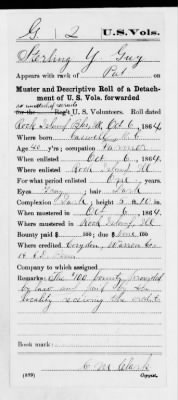 G 2 U.S. Vols.
Sterling Y Guy
Appears with rank of Pvt
Muster and Descriptive Roll of a Detach-
ment of U. S. Vols. forwarded
for the Reg't U. S. Volunteers. Roll dated
Rock Island Bks, Ill, Oct 6, 1864.
Where born Caswell, N.C.
Age 20 y'rs; occupation Farmer
When enlisted Oct 6, 1864.
Where enlisted Rock Island, Ill
For what period enlisted One years.
Eyes Gray; hair Dark
Complexion Dark; height 5 ft. 10 in.
When mustered in Oct 6, 1864.
Where mustered in Rock Island, Ill
Bounty paid $ 100; due $ 100
Where credited Corydon, Warren Co.
Company to which assigned
Remarks: The $100 bounty provided
by law and paid by the
locality receiving the credit
Book mark:
(339) Copyist.